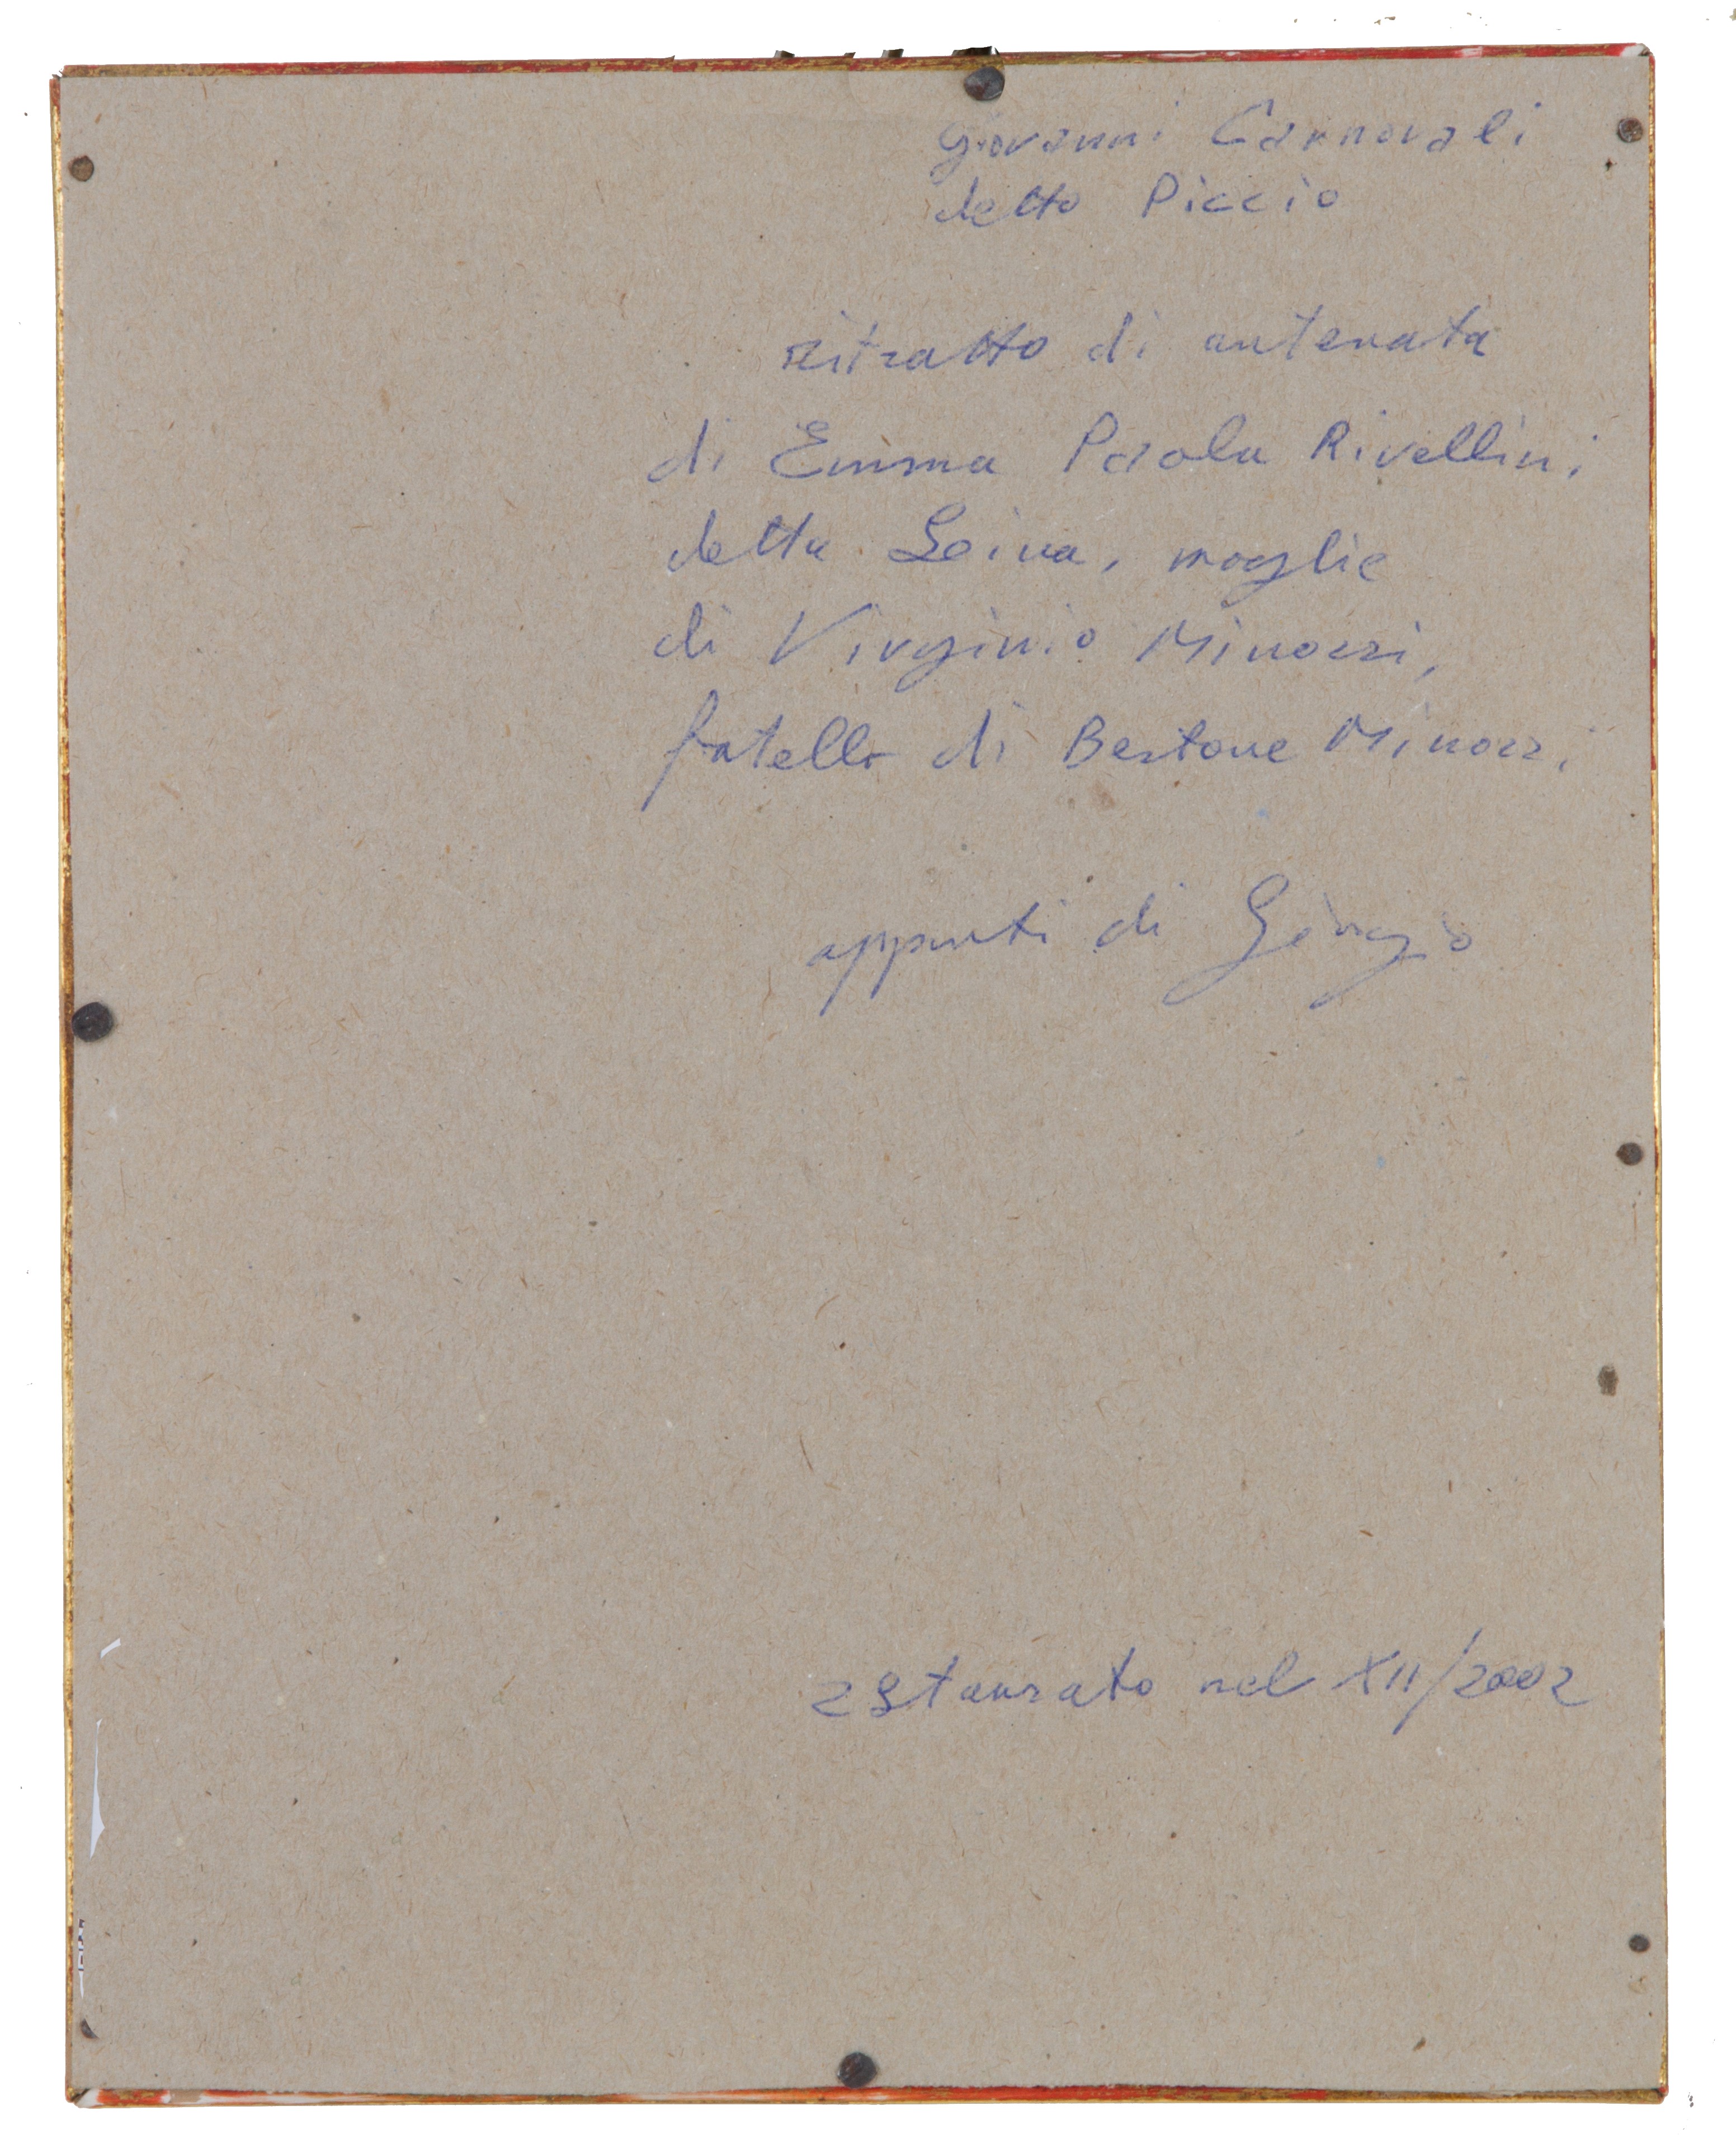 Giovanni Carnovali
detto Piccio
ritratto di antenata
di Emma Paola Rivellini
detta Leina, moglie
di Virginio Minozzi,
fratello di Bertone Minozzi
appunti di Giorgio
restaurato nel XII/2002